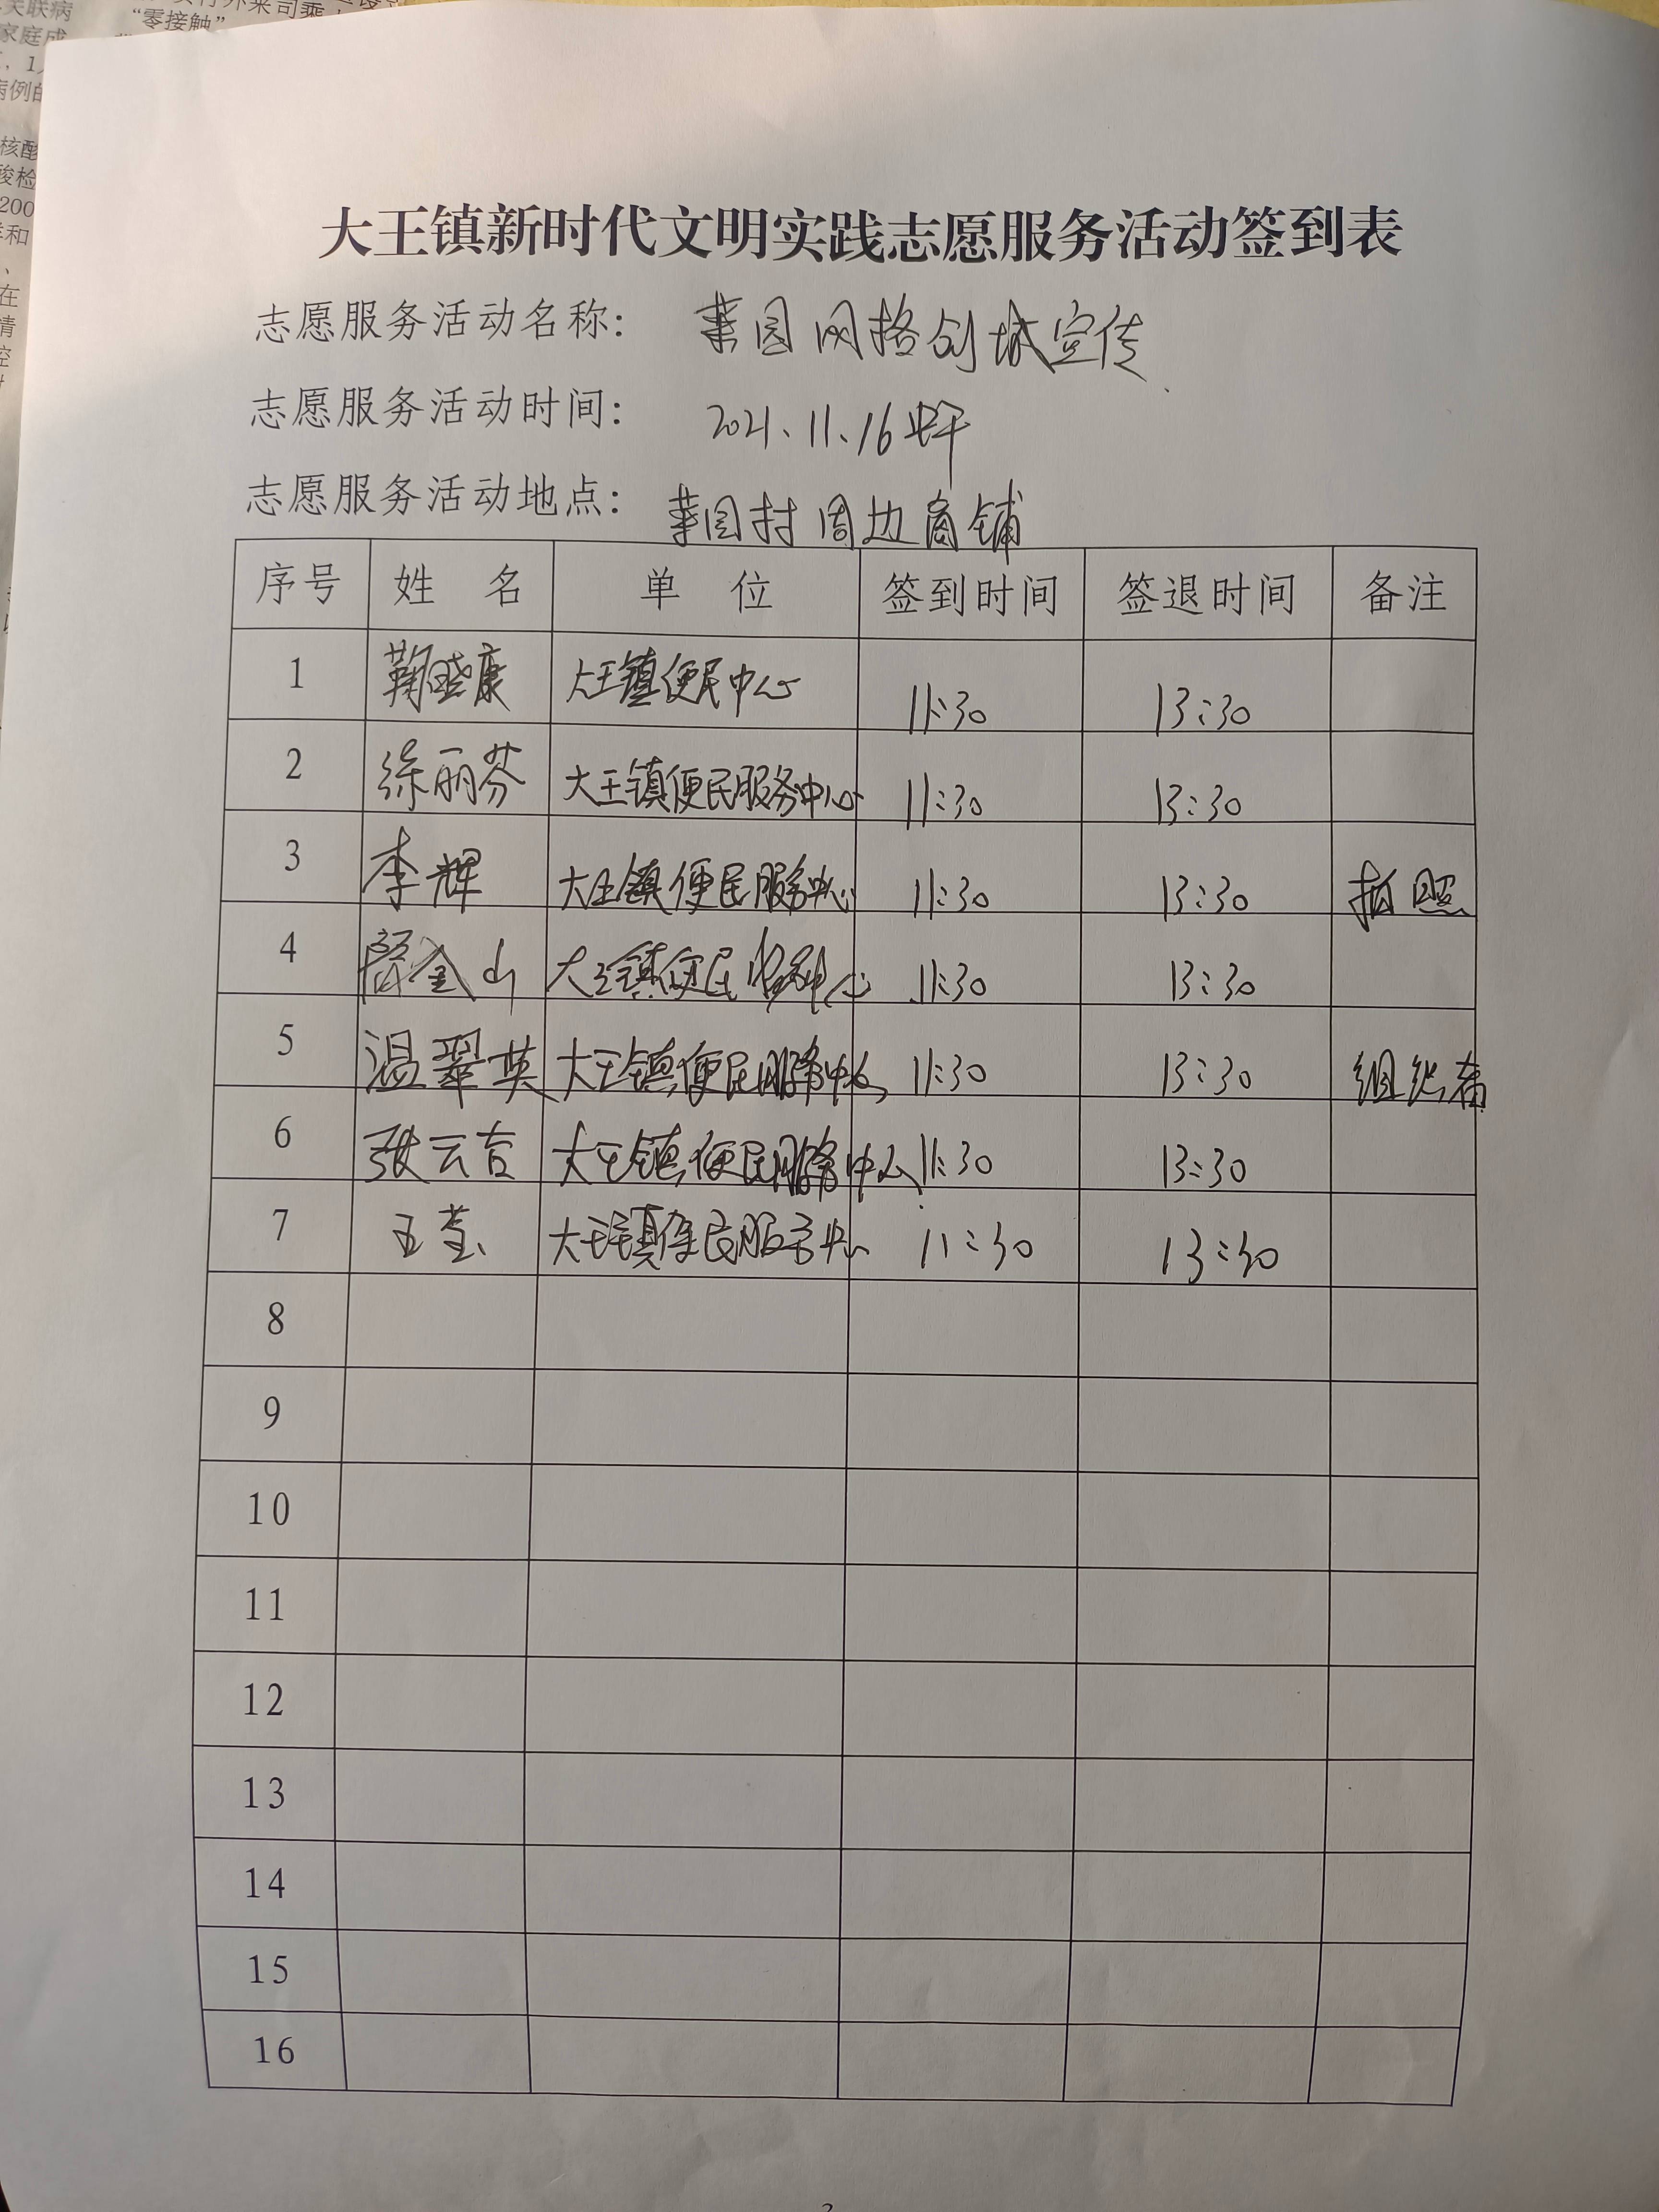 关联病
家庭成
“零接触”
病例的
核酸
酸检
200
和
在
情
控
大王镇新时代文明实践志愿服务活动签到表
志愿服务活动名称: 菜园网格创城宣传
志愿服务活动时间: 2021.11.16 中午
志愿服务活动地点: 菜园村周边商铺
序号 姓 名 单 位 签到时间 签退时间 备注
1 鞠晓康 大王镇便民中心 11:30 13:30
2 徐丽芬 大王镇便民服务中心 11:30 13:30
3 李辉 大王镇便民服务中心 11:30 13:30 拍照
4 金山 大王镇便民服务中心 11:30 13:30
5 温翠英 大王镇便民服务中心 11:30 13:30 组织者
6 张云吉 大王镇便民服务中心 11:30 13:30
7 王莹 大王镇便民服务中心 11:30 13:30
8
9
10
11
12
13
14
15
16